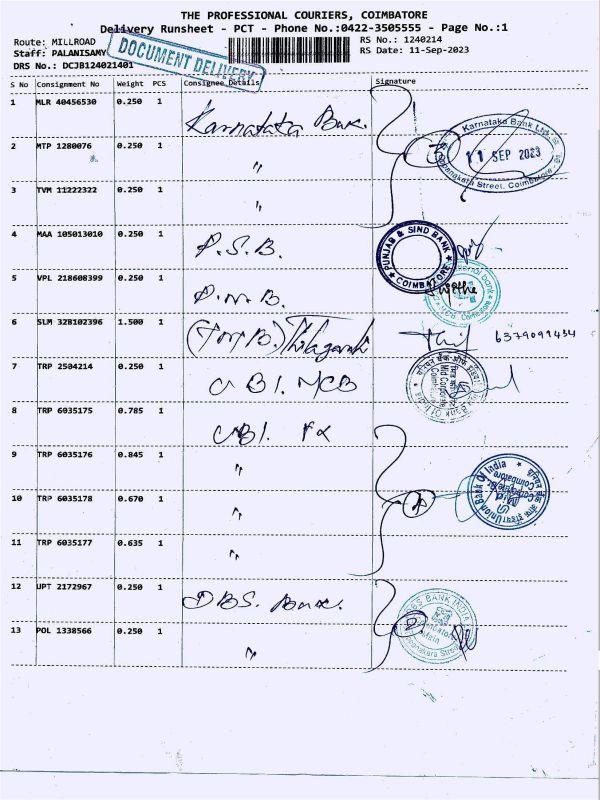 THE PROFESSIONAL COURIERS, COIMBATORE
Delivery Runsheet - PCT - Phone No.:0422-3505555 - Page No.:1
Route: MILLROAD
RS No.: 1240214
Staff: PALANISAMY
RS Date: 11-Sep-2023
DRS No.: DCJB124021401
DOCUMENT DELIVERY
S No Consignment No Weight PCS Consignee Details Signature
1 MLR 40456530 0.250 1 Karnataka Bank.
2 MTP 1280076 0.250 1 "
3 TVM 11222322 0.250 1 "
Karnataka Bank Ltd.
11 SEP 2023
Street, Coimbatore
4 MAA 105013010 0.250 1 P.S.B.
PUNJAB & SIND BANK
COIMBATORE
5 VPL 218608399 0.250 1 P.N.B.
6 SLM 328102396 1.500 1 (TMB.) 6379099434
7 TRP 2504214 0.250 1 UBI. MCB
Mid Corporate
Bank Of India
8 TRP 6035175 0.785 1 UBI. FX
9 TRP 6035176 0.845 1 "
10 TRP 6035178 0.670 1 "
11 TRP 6035177 0.635 1 "
Union Bank Of India
Coimbatore
12 UPT 2172967 0.250 1 DBS. Bank.
13 POL 1338566 0.250 1 "
DBS BANK INDIA
Coimbatore
Main